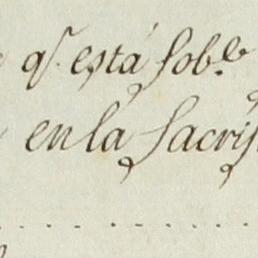 qᵉ. está sobᵉ
en la Sacris